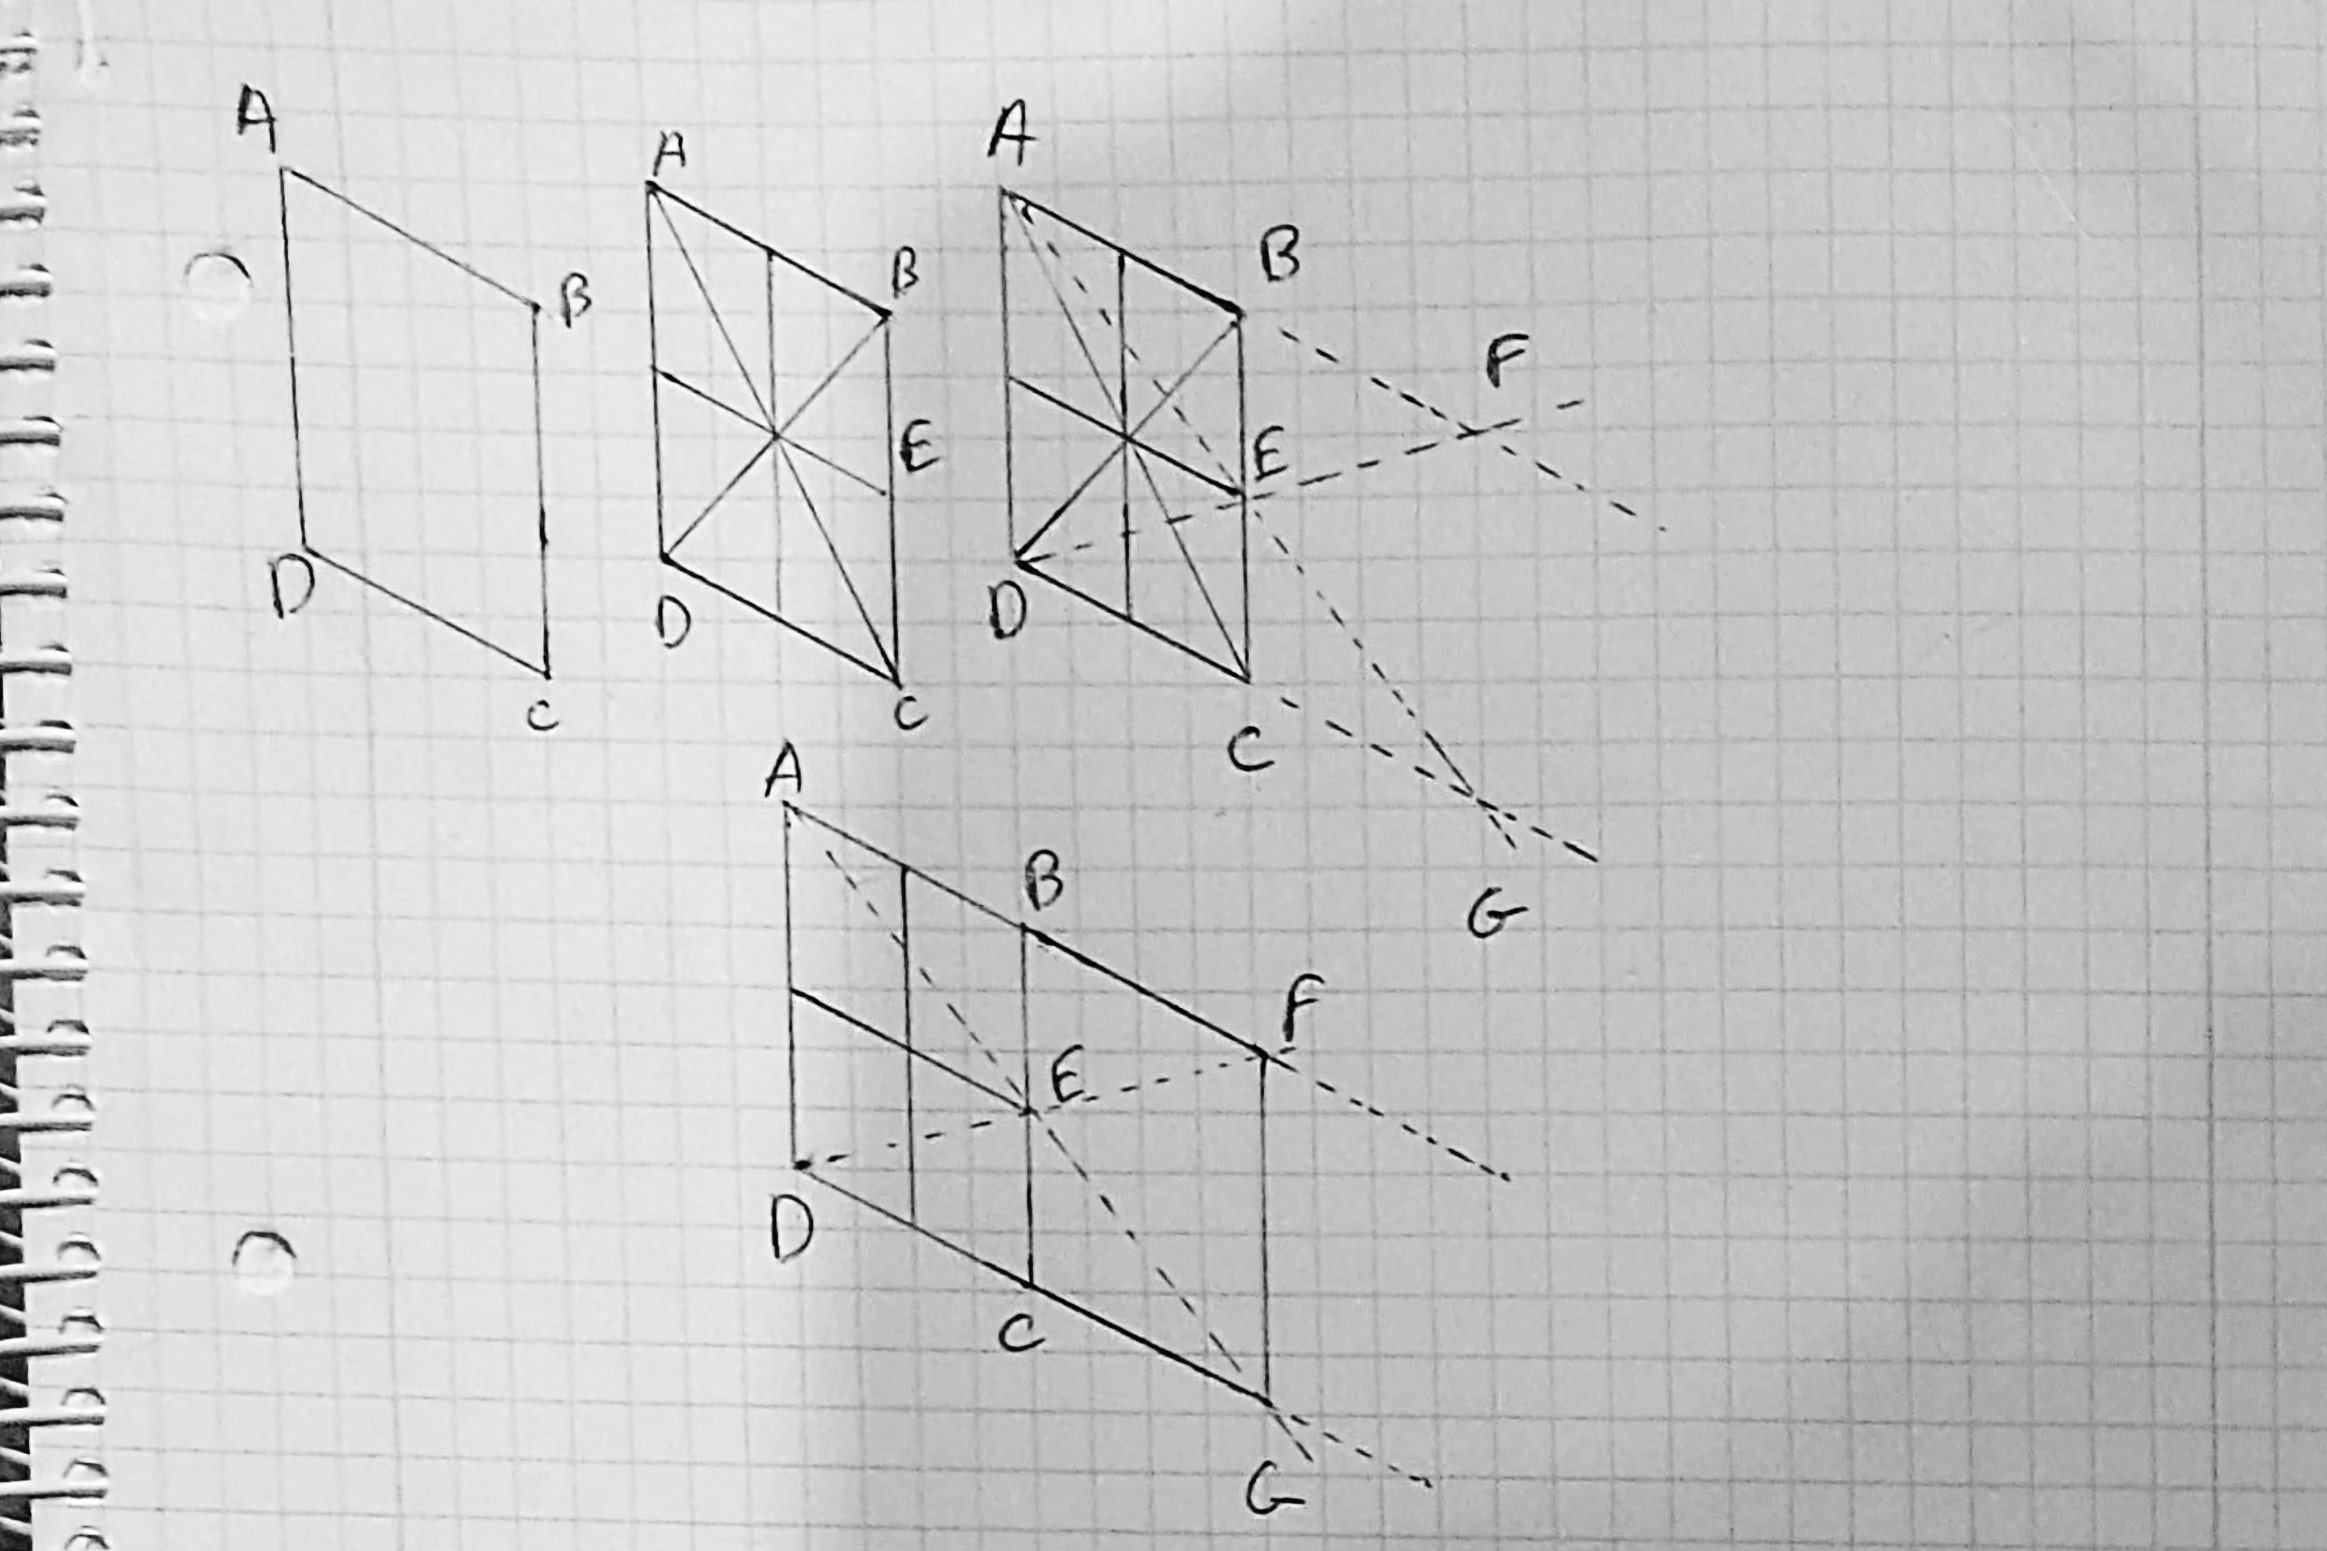 A
B
D
C
A
B
E
D
C
A
B
F
E
D
C
G
A
B
F
E
D
C
G